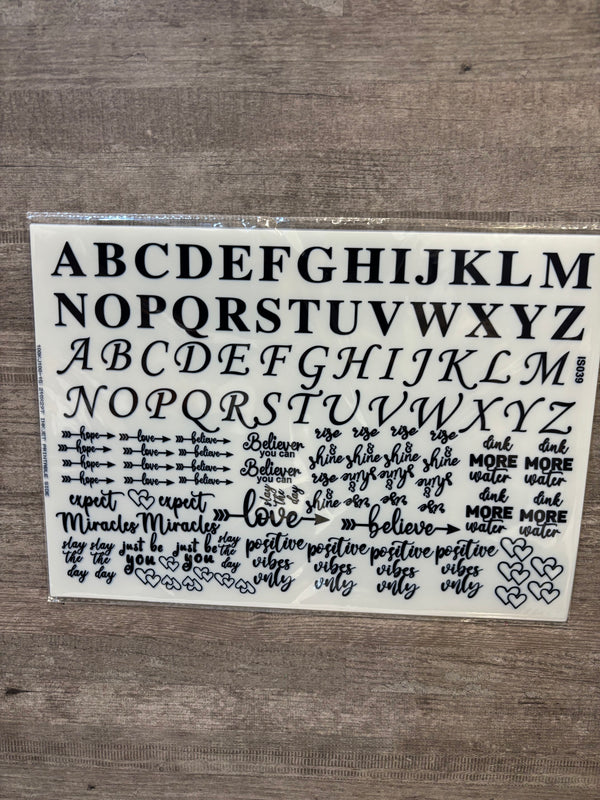 ABCDEFGHIJKLM
NOPQRSTUVWXYZ
ABCDEFGHIJKLM
NOPQRSTUVWXYZ
IS039
hope love believe
hope love believe
hope love believe
hope love believe
Believer
you can
Believer
you can
rise & shine
rise & shine
rise & shine
rise & shine
rise & shine
dink
MORE
water
dink
MORE
water
dink
MORE
water
dink
MORE
water
expect
Miracles
expect
Miracles
slay
the
day
love
believe
slay
the
day
slay
the
day
just be
you
just be
you
slay
the
day
positive
vibes
only
positive
vibes
only
positive
vibes
only
positive
vibes
only